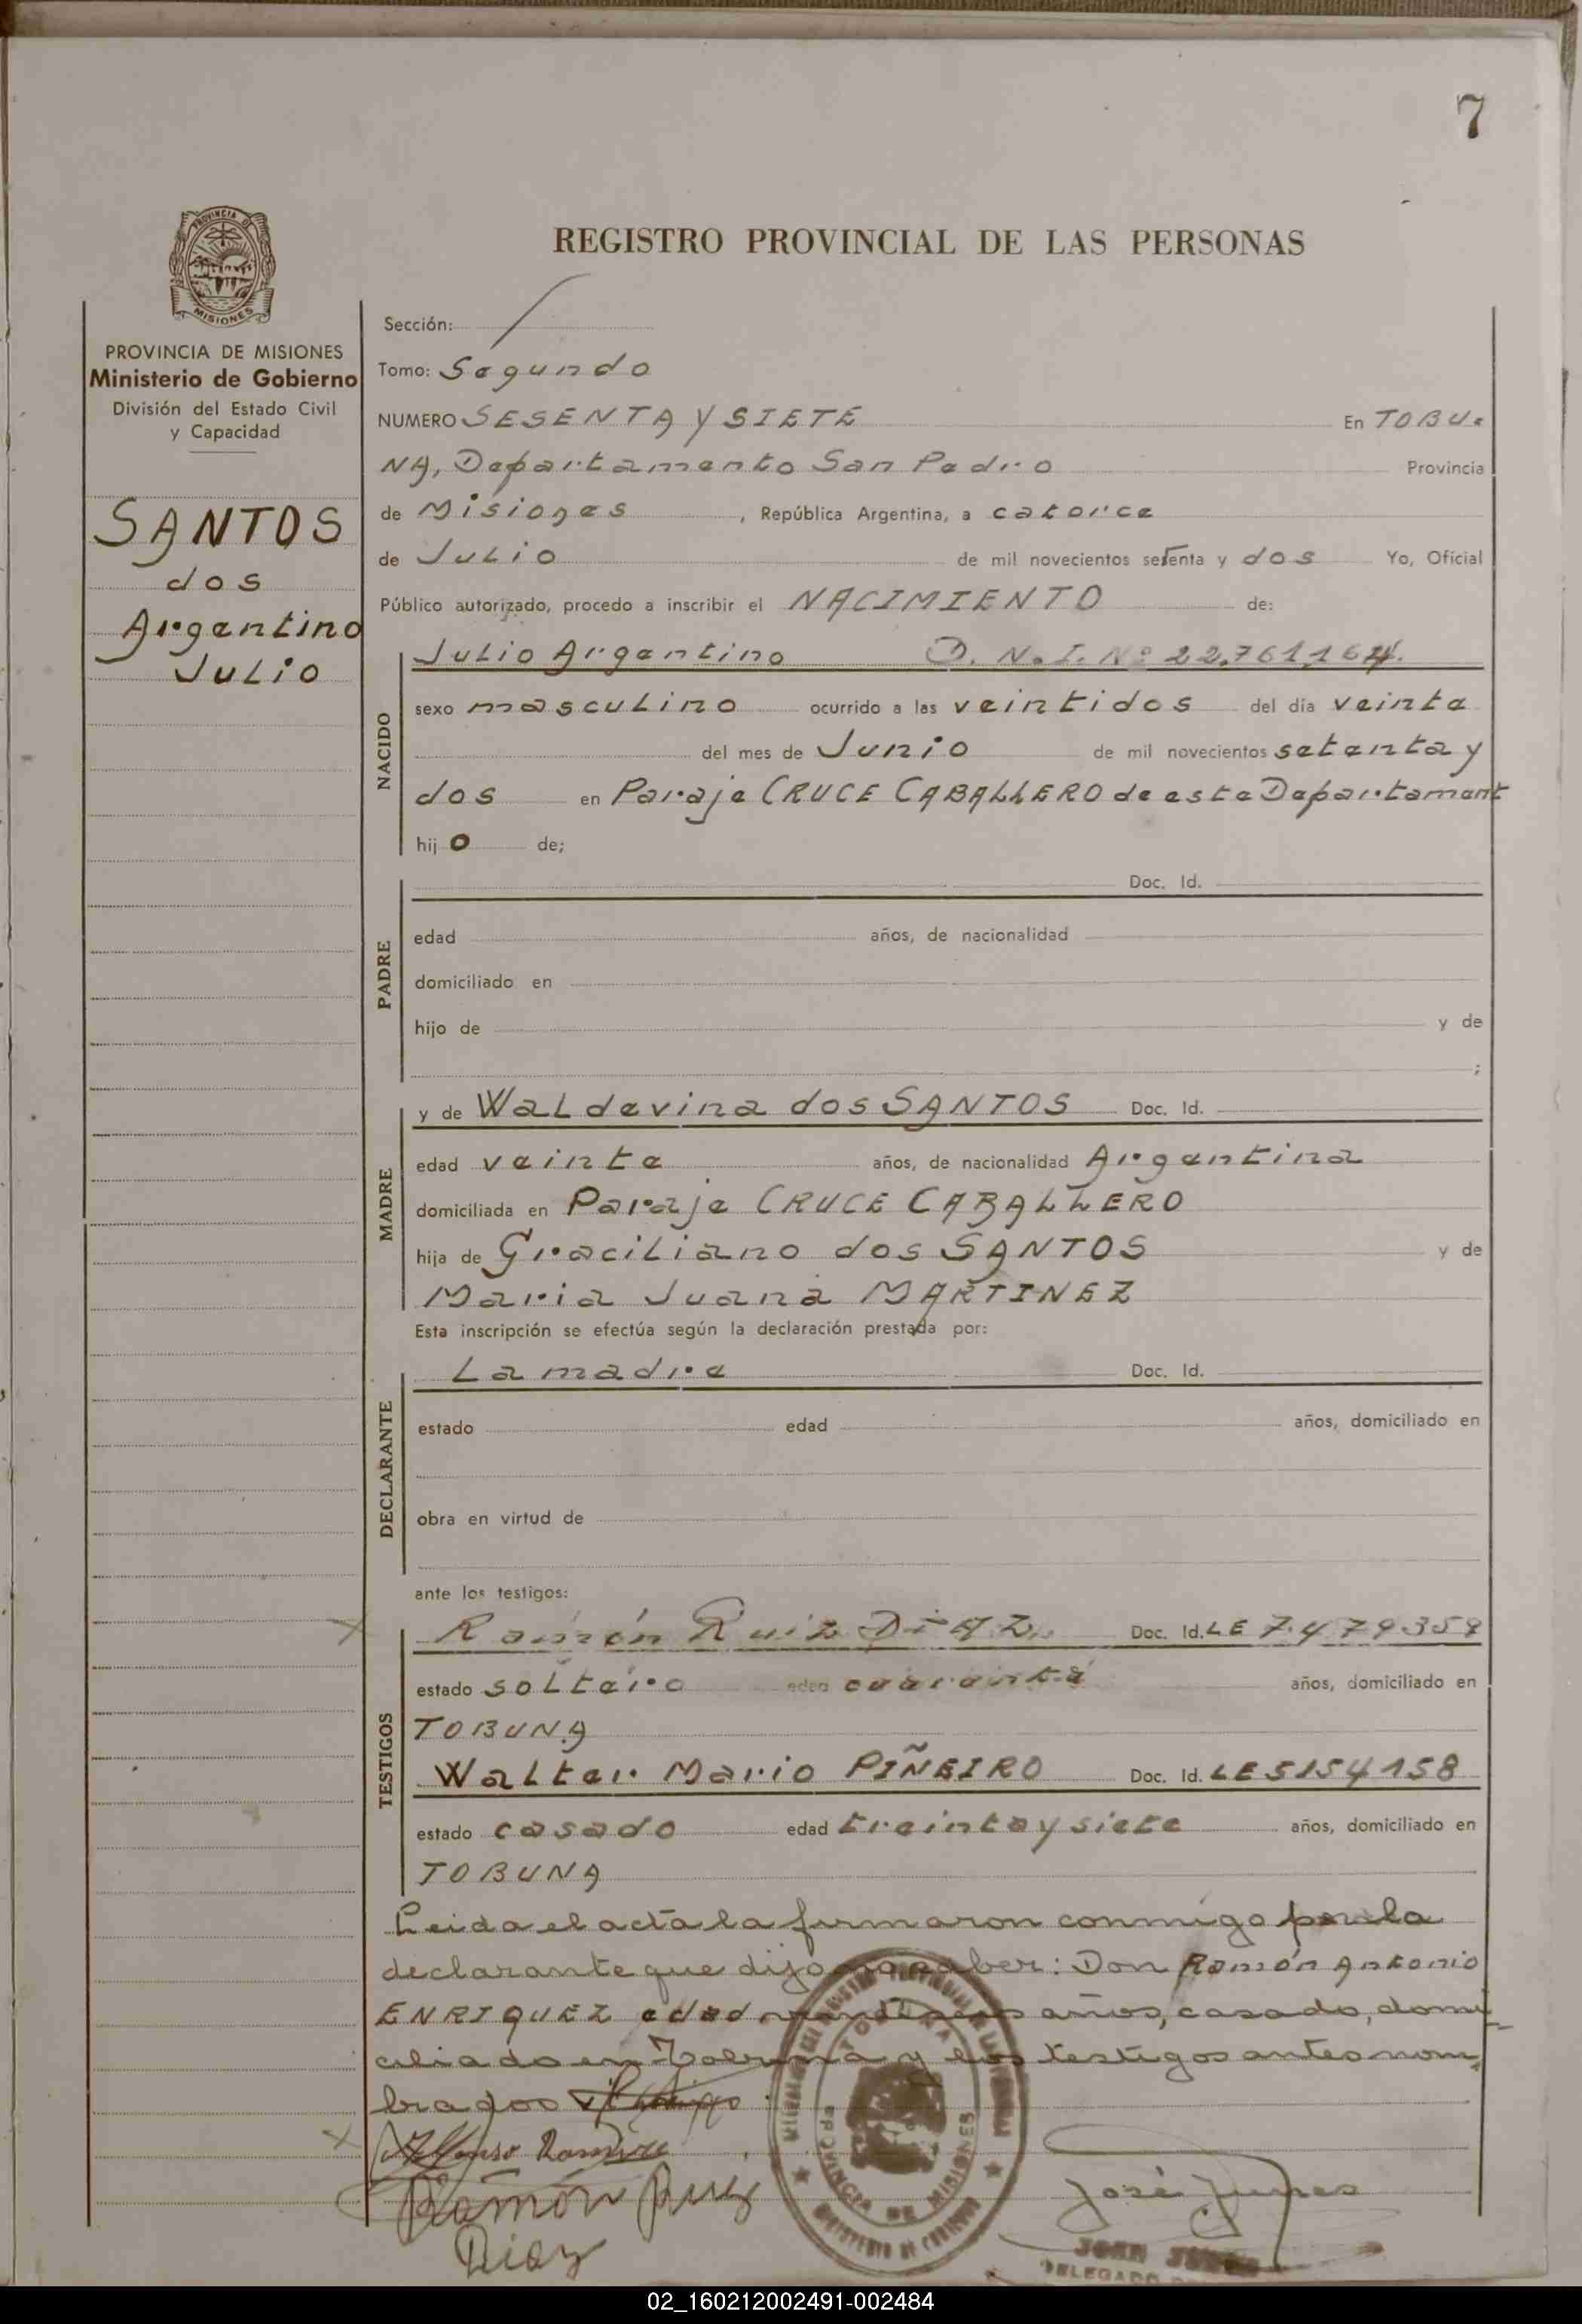 7
REGISTRO PROVINCIAL DE LAS PERSONAS
PROVINCIA DE
MISIONES
PROVINCIA DE MISIONES
Ministerio de Gobierno
División del Estado Civil
y Capacidad
SANTOS
dos
Argentino
Julio
Sección:
Tomo: Segundo
NUMERO SESENTA Y SIETE En TOBU-
NA, Departamento San Pedro Provincia
de Misiones , República Argentina, a catorce
de Julio de mil novecientos setenta y dos Yo, Oficial
Público autorizado, procedo a inscribir el NACIMIENTO de:
NACIDO
Julio Argentino D.N.I. Nº 22.761.164.
sexo masculino ocurrido a las veintidos del día veinte
del mes de Junio de mil novecientos setenta y
dos en Paraje CRUCE CABALLERO de este Departament
hijo de;
PADRE
Doc. Id.
edad años, de nacionalidad
domiciliado en
hijo de y de
;
MADRE
y de Waldevina dos SANTOS Doc. Id.
edad veinte años, de nacionalidad Argentina
domiciliada en Paraje CRUCE CABALLERO
hija de Graciliano dos SANTOS y de
Maria Juana MARTINEZ
Esta inscripción se efectúa según la declaración prestada por:
DECLARANTE
La madre Doc. Id.
estado edad años, domiciliado en
obra en virtud de
ante los testigos:
TESTIGOS
Ramón Ruiz DIAZ Doc. Id. LE 7.479359
estado soltero edad cuarenta años, domiciliado en
TOBUNA
Walter Mario PIÑEIRO Doc. Id. LE5154158
estado casado edad treinta y siete años, domiciliado en
TOBUNA
Leida el acta la firmaron conmigo por la
declarante que dijo no saber: Don Ramón Antonio
ENRIQUEZ edad años, casado, domi
ciliado en Tobuna y los testigos antes nom
brados
TOBUNA
PROVINCIA DE MISIONES
MINISTERIO DE GOBIERNO
Ramón Ruiz
Diaz
José
DELEGADO
02_160212002491-002484